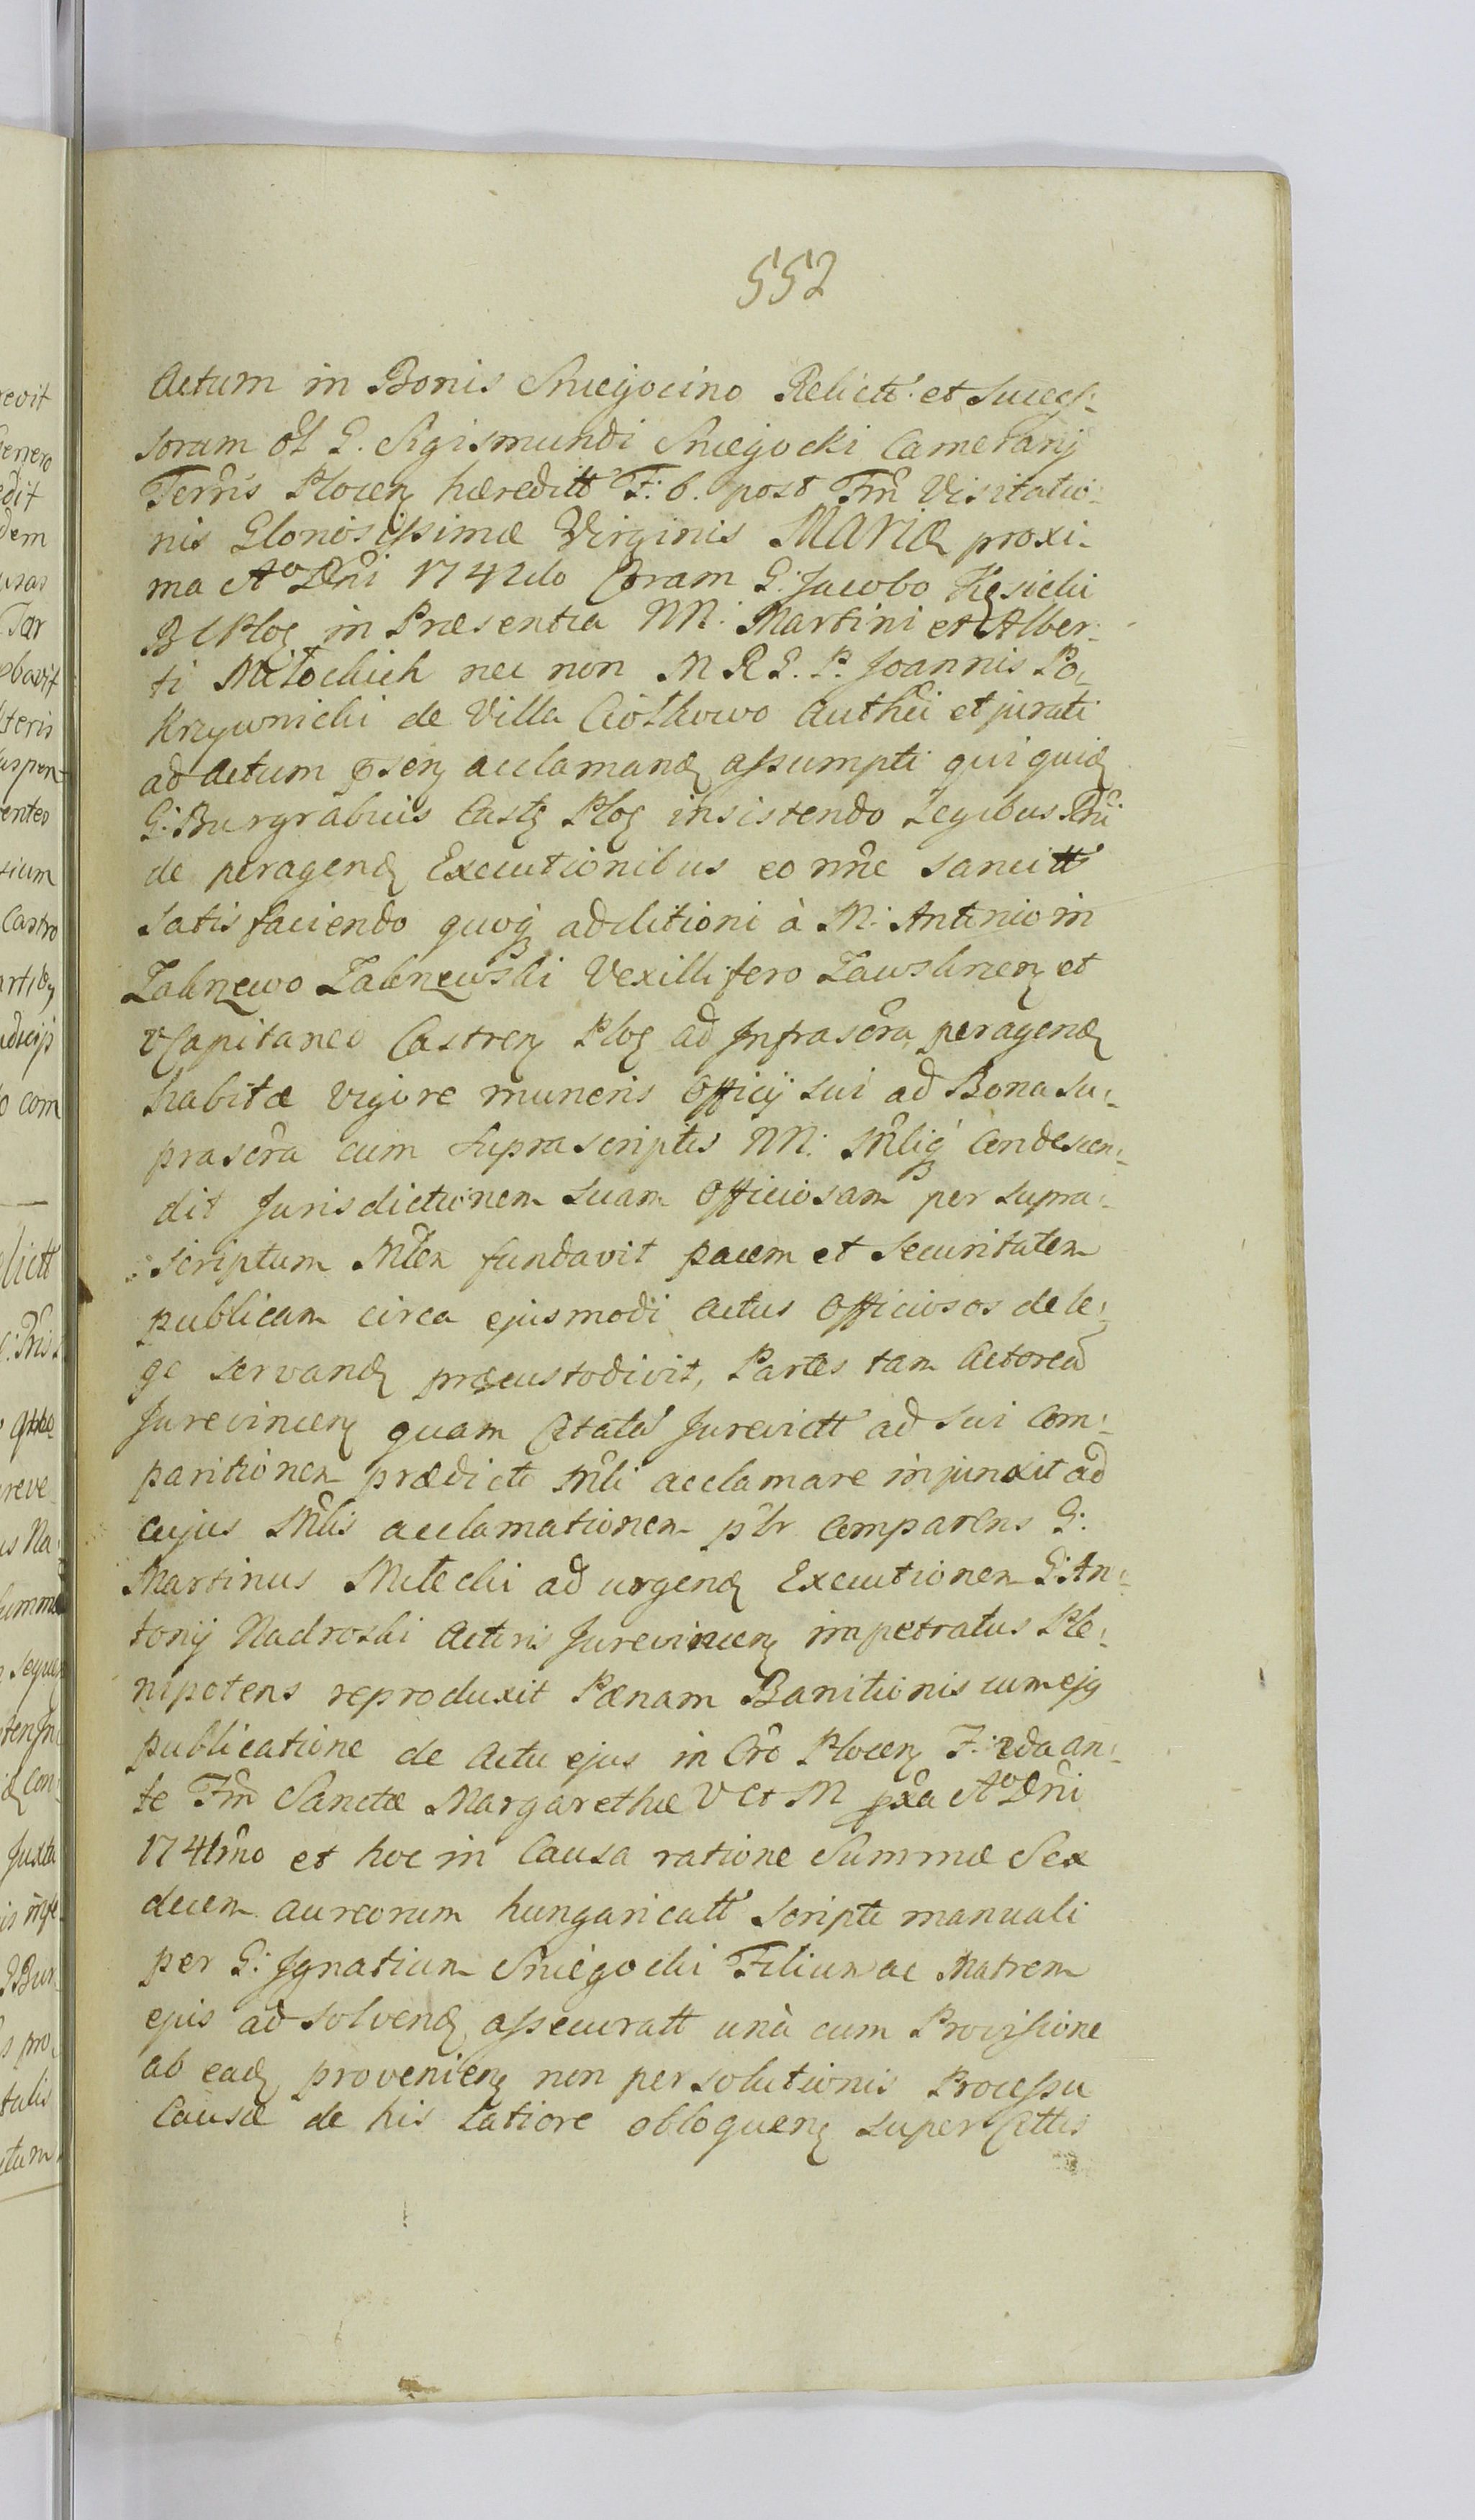 552
Actum in Bonis Sniegocino Relictt et Succes:
sorum ol G. Sigismundi Sniegocki Camerarij
Terris Plocen hæreditt F: 6. post Fm Visitatio:
nis Gloriosissimæ Virginis MARIÆ proxi:
ma Ao Dni 1742do Coram G: Jacobo Kęsicki
B C Ploc in Præsentia NN: Martini et Alber:
ti Miłockich nec non M R G. P. Joannis Po:
krzywnicki de Villa Ciółkowo Authci et jurati
ad Actum psen acclamand assumpti qui quid
G: Burgrabius Castr Ploc insistendo Legibus Rni
de peragend Executionibus eo nne sancitt
satisfaciendo quoq additioni à M: Antonio in
Zabnewo Zabnewski Vexillifero Zawskrzen et
VCapitaneo Castren Ploc ad Infrascra peragend
habitæ vigore muneris Officij sui ad Bona su:
prascra cum suprascriptis NN: Mliq Condescen:
dit Jurisdictionem suam Officiosam per supra:
scriptum Mlem fundavit pacem et securitatem
publicam circa ejusmodi actus Officiosos de le:
ge servand præcustodivit, Partes tam Actorea
Jurevincen quam Citata Jurevictt ad sui Com:
paritionem prædicto Mli acclamare injunxit ad
cujus Mlis acclamationem plr Comparens G:
Martinus Miłocki ad urgend Executionem G: An:
tonij Nadroski Actoris Jurevincen impetratus Ple:
nipotens reproduxit Pænam Banitionis cum ejq
publicatione de Actu ejus in Cro Plocen F: 2da an:
te Fm Sanctæ Margarethæ V et M pxa Ao Dni
1741mo et hoc in Causa ratione Summæ Sex
decem aureorum hungaricatt scripto manuali
per G: Ignatium Sniegocki Filium ac Matrem
ejus ad solvend assecuratt unà cum Provisione
ab ead provenien non persolutionis Processu
Causæ de his latiore obloquen super Cittis